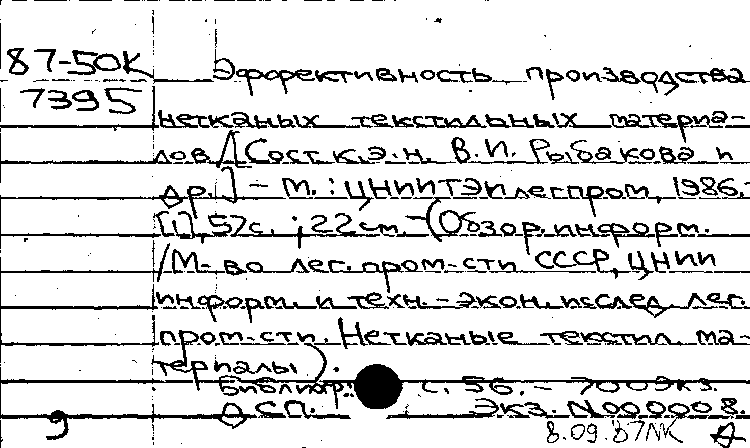 87-50К
7395
Эффективность производства
нетканых текстильных материа-
лов / [Сост. к.э.н. В.И. Рыбакова и
др.] - М. : ЦНИИТЭИлегпром, 1986.-
[1], 57с. ; 22см. - (Обзор. информ.
/М-во лег. пром-сти СССР, ЦНИИ
информ. и техн.-экон. исслед. лег.
пром-сти. Нетканые текстил. ма-
териалы).
Библиогр.: с. 56. - 700экз.
ДСП. Экз. N000008.
9
8.09.87